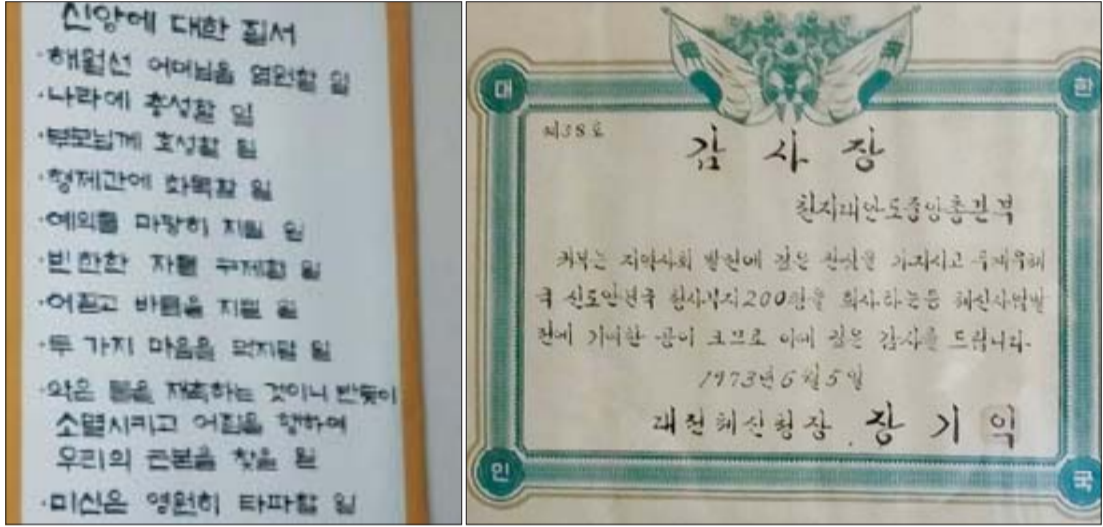 신앙에 대한 질서
·해월선 어머님을 염원할 일
·나라에 충성할 일
·부모님께 효성할 일
·형제간에 화목할 일
·예의를 마땅히 지킬 일
·빈한한 자를 구제할 일
·어질고 바름을 지킬 일
·두 가지 마음을 먹지말 일
·악은 몸을 재촉하는 것이니 반듯이
소멸시키고 어짐을 행하여
우리의 근본을 찾을 일
·미신은 영원히 타파할 일
대 한
제38호
감사장
천지대안도중앙총본부
귀부는 지역사회 발전에 깊은 관심을 가지시고 두계우체
국 신도안분국 청사부지200평을 희사하는등 체신사업발
전에 기여한 공이 크므로 이에 깊은 감사를 드립니다.
1973년 6월 5일
대전체신청장 장기익
인 국